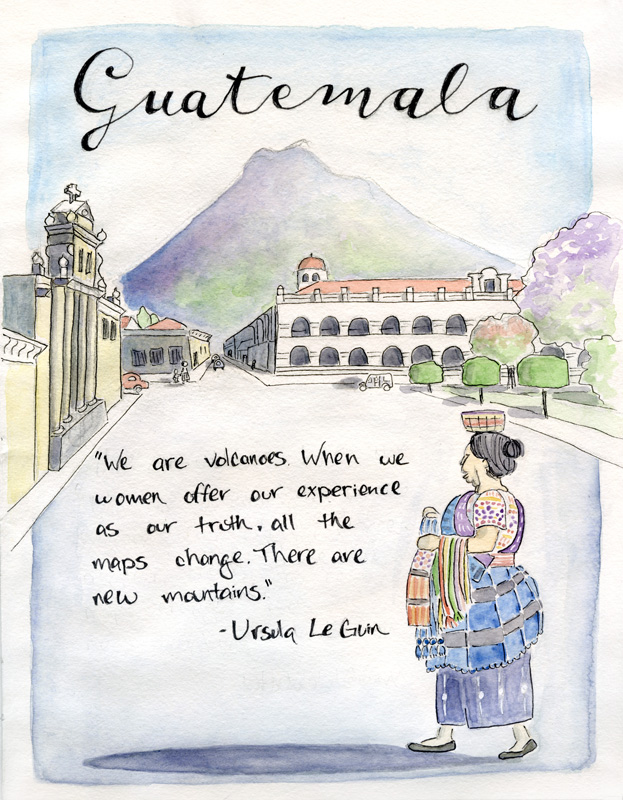 Guatemala
"We are volcanoes. When we
women offer our experience
as our truth, all the
maps change. There are
new mountains."
-Ursula Le Guin